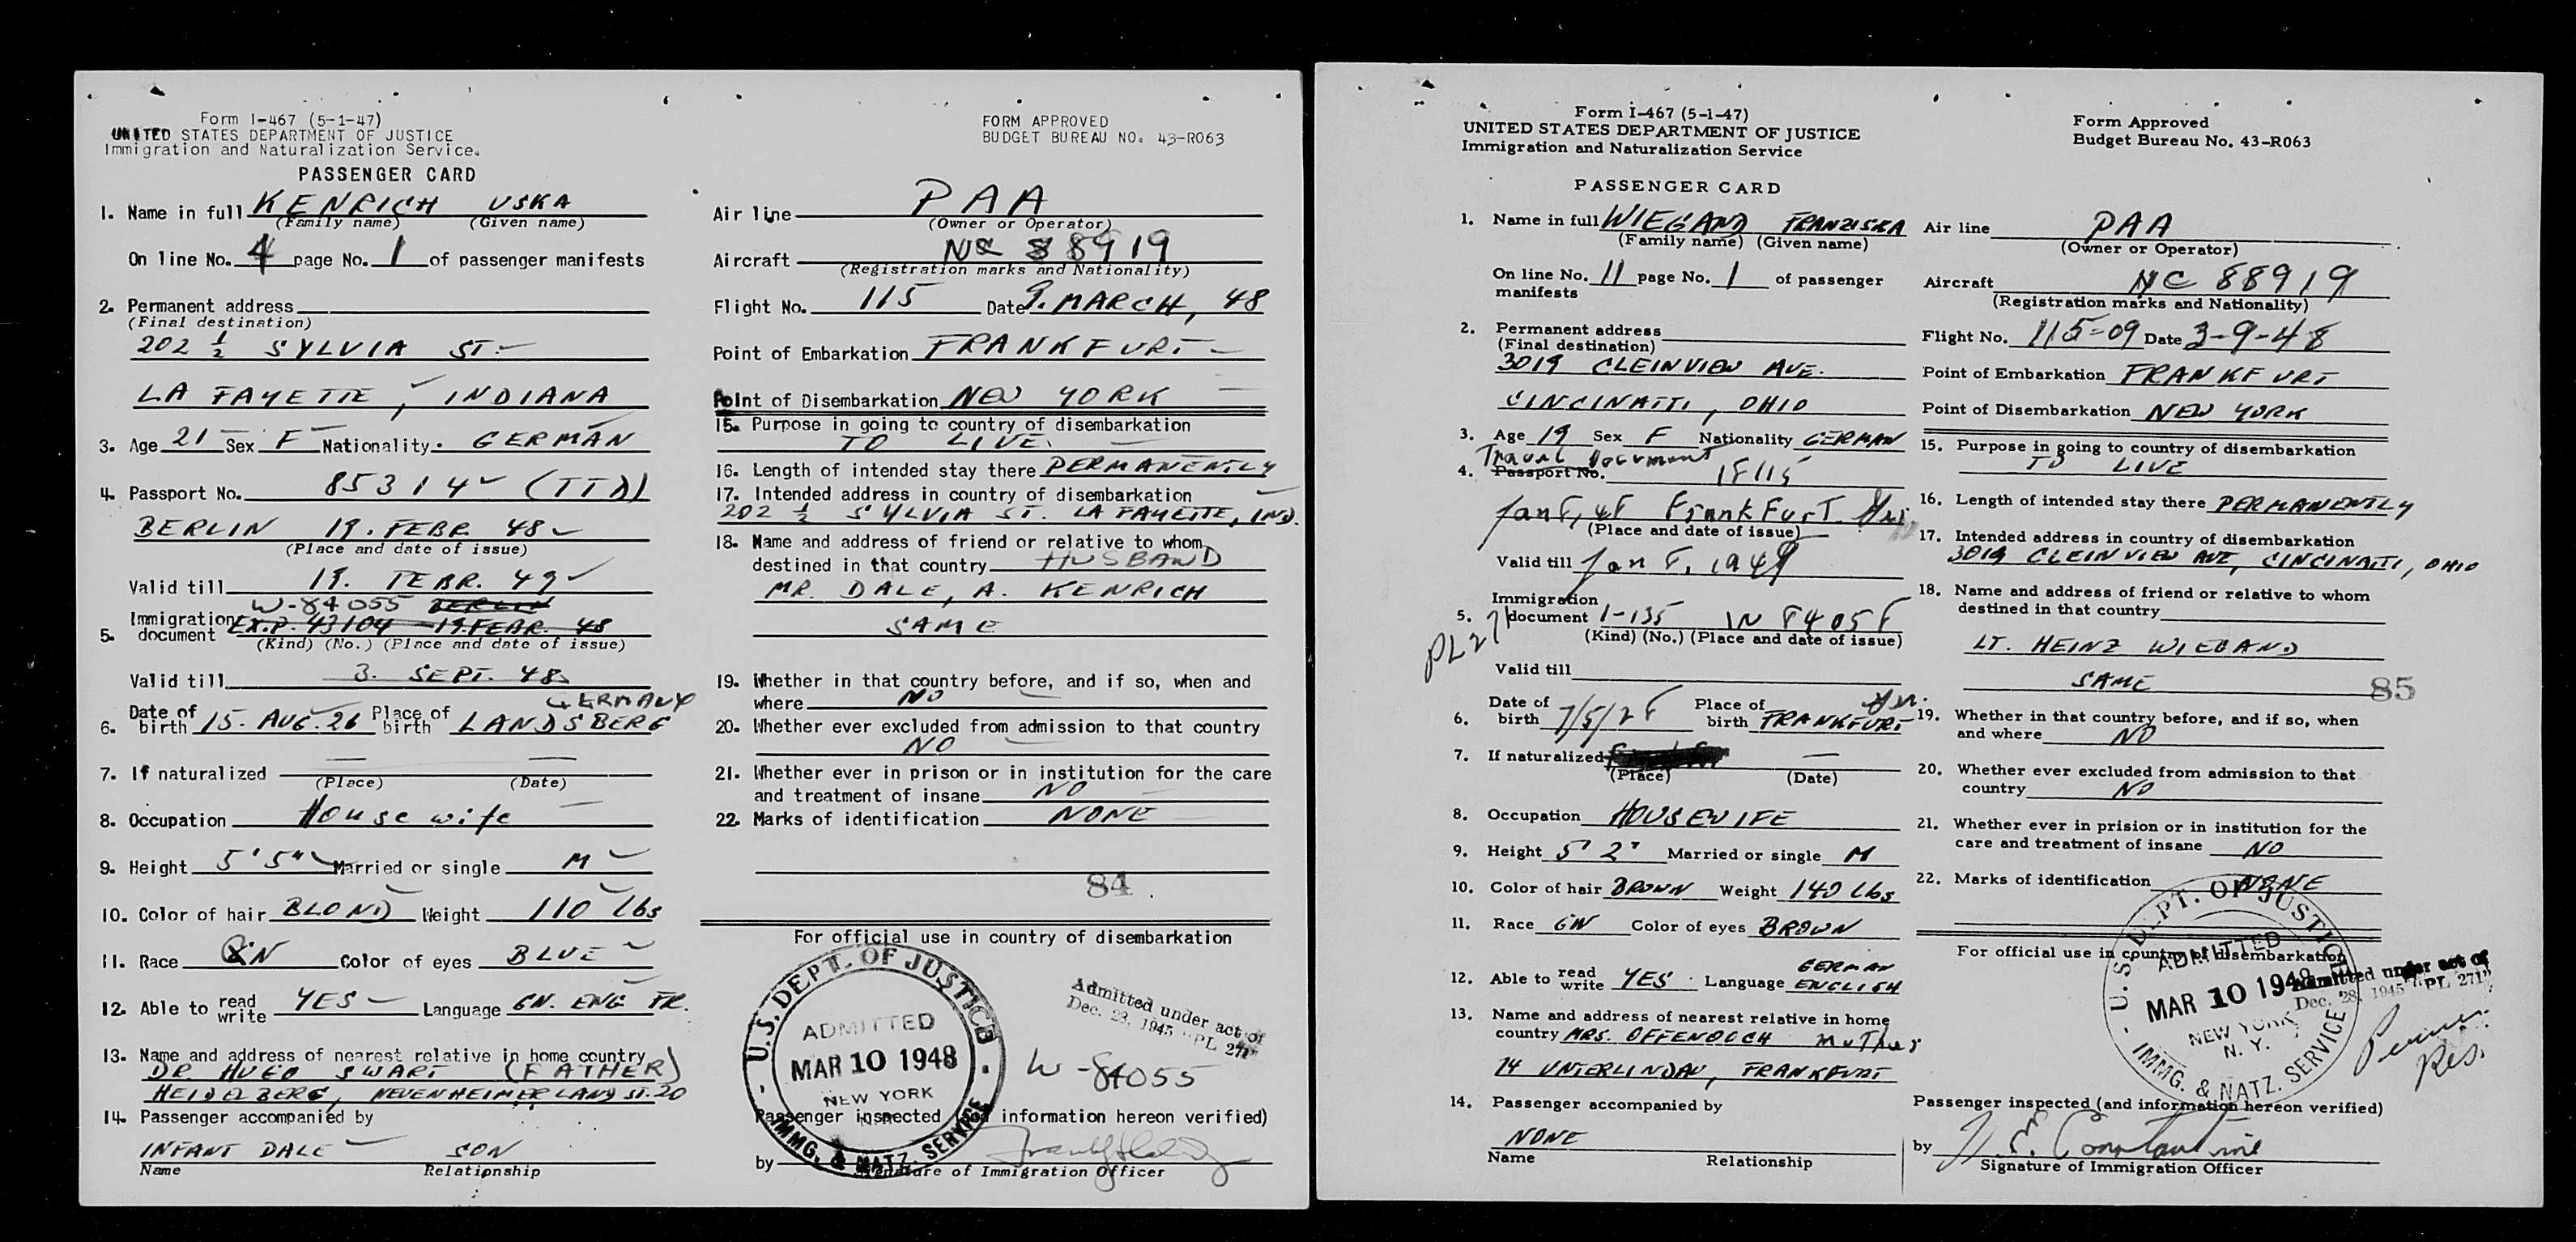 Form I-467 (5-1-47)
UNITED STATES DEPARTMENT OF JUSTICE
Immigration and Naturalization Service.
PASSENGER CARD
FORM APPROVED
BUDGET BUREAU NO. 43-R063
1. Name in full KENRICH USKA
(Family name) (Given name)
On line No. 4 page No. 1 of passenger manifests
2. Permanent address
(Final destination)
202 1/2 SYLVIA ST.
LA FAYETTE, INDIANA
3. Age 21 Sex F Nationality. GERMAN
4. Passport No. 85314 (TTD)
BERLIN 19. FEBR. 48
(Place and date of issue)
Valid till 19. FEBR. 49
W-84055 BERLIN
5. Immigration document EX.P. 43104 19.FEBR. 48
(Kind) (No.) (Place and date of issue)
Valid till 3. SEPT. 48
GERMANY
6. Date of birth 15. AUG. 26 Place of birth LANDSBERG
7. If naturalized
(Place) (Date)
8. Occupation Housewife
9. Height 5'5" Married or single M
10. Color of hair BLOND Weight 110 lbs
11. Race GN Color of eyes BLUE
12. Able to read write YES Language GN. ENG FR.
13. Name and address of nearest relative in home country
DR. HUGO SWART (FATHER)
HEIDELBERG, NEUENHEIMER LAND ST. 20
14. Passenger accompanied by
INFANT DALE SON
Name Relationship
Air line PAA
(Owner or Operator)
Aircraft NC 88919
(Registration marks and Nationality)
Flight No. 115 Date 9. MARCH, 48
Point of Embarkation FRANKFURT
Point of Disembarkation NEW YORK
15. Purpose in going to country of disembarkation
TO LIVE
16. Length of intended stay there PERMANENTLY
17. Intended address in country of disembarkation
202 1/2 SYLVIA ST. LA FAYETTE, IND.
18. Name and address of friend or relative to whom
destined in that country HUSBAND
MR. DALE, A. KENRICH
SAME
19. Whether in that country before, and if so, when and
where NO
20. Whether ever excluded from admission to that country
NO
21. Whether ever in prison or in institution for the care
and treatment of insane NO
22. Marks of identification NONE
84
For official use in country of disembarkation
U.S. DEPT. OF JUSTICE
ADMITTED
MAR 10 1948
NEW YORK
IMMG. & NATZ. SERVICE
Admitted under act of
Dec. 28, 1945 "PL 271"
W-84055
Passenger inspected (and information hereon verified)
by
Signature of Immigration Officer
Form I-467 (5-1-47)
UNITED STATES DEPARTMENT OF JUSTICE
Immigration and Naturalization Service
PASSENGER CARD
Form Approved
Budget Bureau No. 43-R063
1. Name in full WIEGAND FRANZISKA
(Family name) (Given name)
On line No. 11 page No. 1 of passenger
manifests
2. Permanent address
(Final destination)
3019 CLEINVIEW AVE.
CINCINATTI, OHIO
3. Age 19 Sex F Nationality GERMAN
Travel Document
4. Passport No. 18115
Jan 8, 48 Frankfurt. Ger
(Place and date of issue)
Valid till Jan 8, 1949
PL 271
5. Immigration document I-135 W 84058
(Kind) (No.) (Place and date of issue)
Valid till
Ger.
6. Date of birth 7/5/28 Place of birth FRANKFURT
7. If naturalized
(Place) (Date)
8. Occupation HOUSEWIFE
9. Height 5' 2" Married or single M
10. Color of hair BROWN Weight 140 Lbs
11. Race GN Color of eyes BROWN
12. Able to read write YES Language GERMAN ENGLISH
13. Name and address of nearest relative in home
country MRS. OFFENDOCH Mother
14 UNTERLINDAU, FRANKFURT
14. Passenger accompanied by
NONE
Name Relationship
Air line PAA
(Owner or Operator)
Aircraft NC 88919
(Registration marks and Nationality)
Flight No. 115-09 Date 3-9-48
Point of Embarkation FRANKFURT
Point of Disembarkation NEW YORK
15. Purpose in going to country of disembarkation
TO LIVE
16. Length of intended stay there PERMANENTLY
17. Intended address in country of disembarkation
3019 CLEINVIEW AVE, CINCINATTI, OHIO
18. Name and address of friend or relative to whom
destined in that country
LT. HEINZ WIEGAND
SAME
85
19. Whether in that country before, and if so, when
and where NO
20. Whether ever excluded from admission to that
country NO
21. Whether ever in prision or in institution for the
care and treatment of insane NO
22. Marks of identification NONE
For official use in country of disembarkation
U.S. DEPT. OF JUSTICE
ADMITTED
MAR 10 1948
NEW YORK
N. Y.
IMMG. & NATZ. SERVICE
Admitted under act of
Dec. 28, 1945 "PL 271"
Res.
Passenger inspected (and information hereon verified)
by Constantine
Signature of Immigration Officer